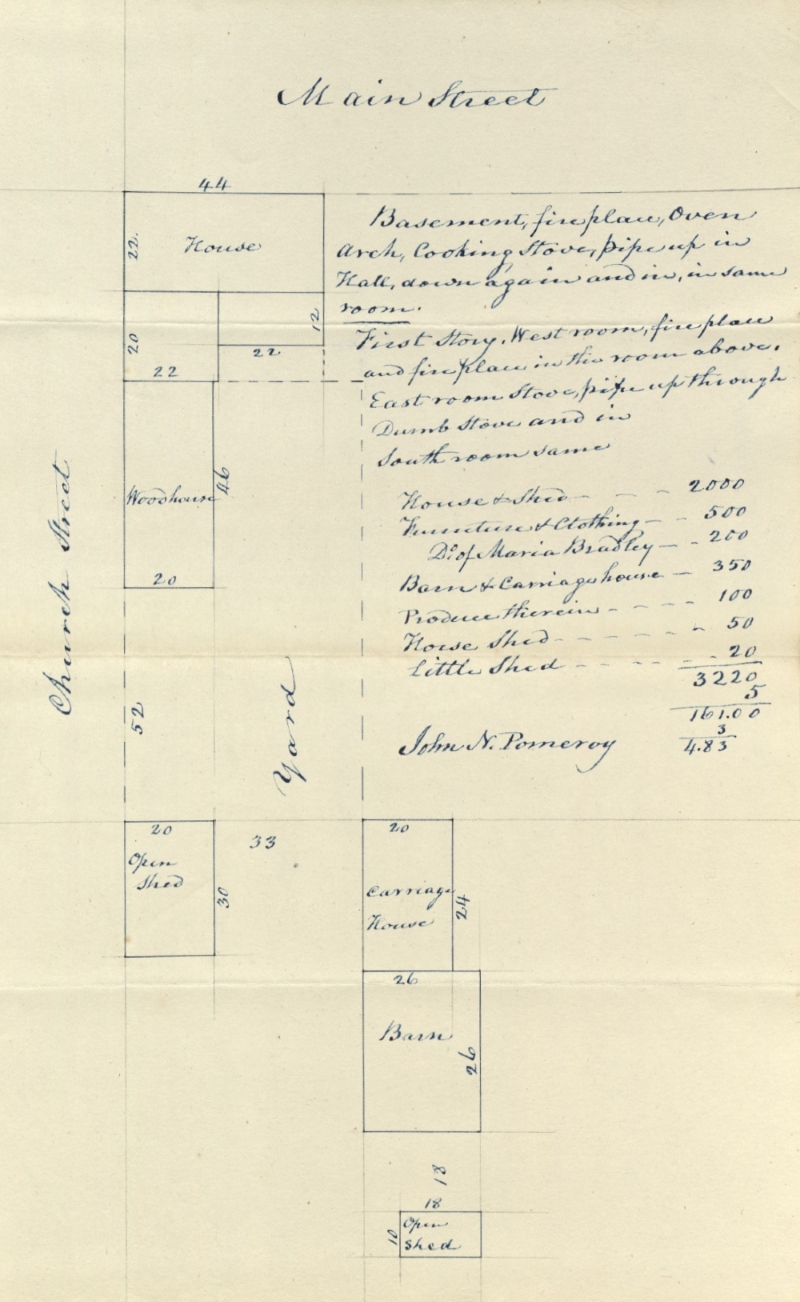 Main Street
44
22
House
20
22
12
22
Basement, fire place, Oven
Arch, Cooking Stove, pipe up in
Hall, down again and in, in same
room.
First Story. West room, fire place
and fire place in the room above.
East room Stove, pipe up through
Dumb Stove and in
South room same
Woodhouse
46
20
Church Street
52
Yard
House & Shed - - - 2000
Furniture & Clothing - - 500
Do of Maria Bradley - - 200
Barn & Carriagehouse - 350
Produce therein - - - - 100
Horse Shed - - - - - 50
Little Shed - - - - - 20
3220
5
161.00
3
4.83
John N. Pomeroy
20
Open
Shed
30
33
20
Carriage
House
24
26
Barn
26
18
18
10
Open
Shed